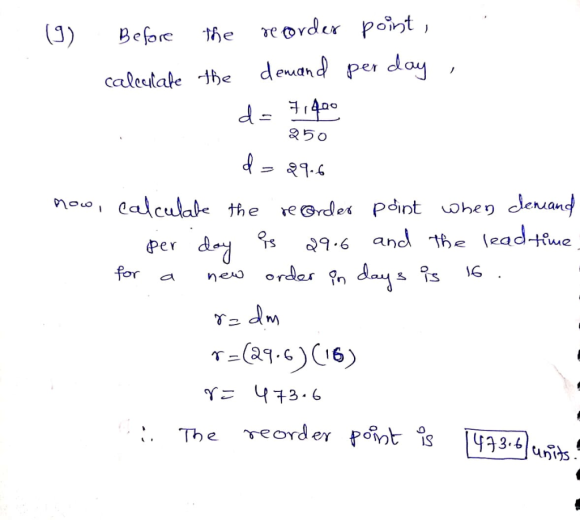 (g) Before the reorder point,
calculate the demand per day,
d = 7,400
250
d = 29.6
now, calculate the reorder point when demand
per day is 29.6 and the lead time
for a new order in days is 16.
r = dm
r = (29.6)(16)
r = 473.6
∴ The reorder point is 473.6 units.